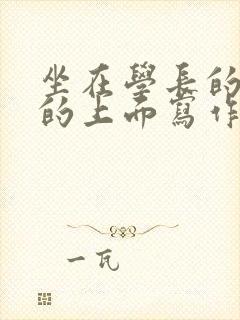 坐在學長的
的上而寫作
一瓦